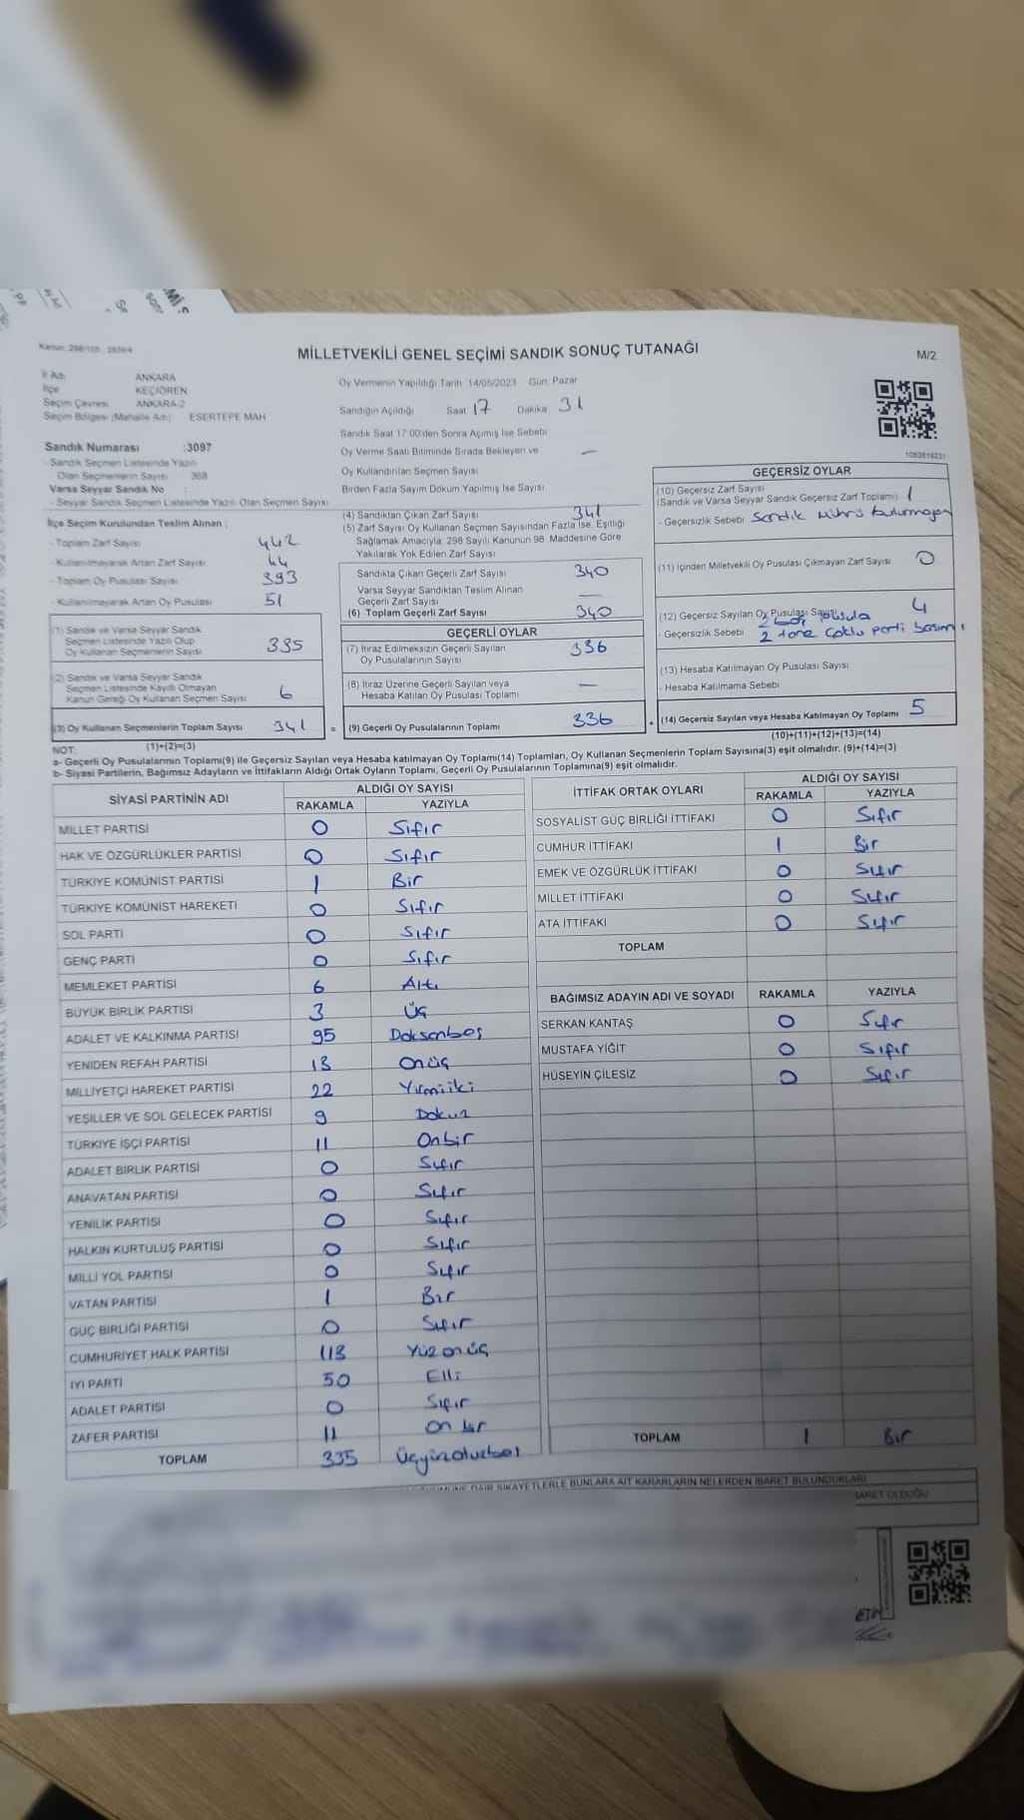 MİLLETVEKİLİ GENEL SEÇİMİ SANDIK SONUÇ TUTANAĞI
M/2
İl Adı ANKARA
İlçe KEÇİÖREN
Seçim Çevresi ANKARA-2
Seçim Bölgesi (Mahalle Adı) ESERTEPE MAH
Oy Vermenin Yapıldığı Tarih 14/05/2023 Gün: Pazar
Sandığın Açıldığı Saat 17 Dakika 31
Sandık Saat 17:00'den Sonra Açımış İse Sebebi
Oy Verme Saati Bitiminde Sırada Bekleyen ve
Oy Kullandırılan Seçmen Sayısı —
Birden Fazla Sayım Döküm Yapılmış İse Sayısı
Sandık Numarası :3097
- Sandık Seçmen Listesinde Yazılı
Olan Seçmenlerin Sayısı 368
Varsa Seyyar Sandık No :
- Seyyar Sandık Seçmen Listesinde Yazılı Olan Seçmen Sayısı
İlçe Seçim Kurulundan Teslim Alınan :
- Toplam Zarf Sayısı 442
- Kullanılmayarak Artan Zarf Sayısı 44
- Toplam Oy Pusulası Sayısı 393
- Kullanılmayarak Artan Oy Pusulası 51
(1) Sandık ve Varsa Seyyar Sandık
Seçmen Listesinde Yazılı Olup
Oy Kullanan Seçmenlerin Sayısı 335
(2) Sandık ve Varsa Seyyar Sandık
Seçmen Listesinde Kayıtlı Olmayan
Kanun Gereği Oy Kullanan Seçmen Sayısı 6
(3) Oy Kullanan Seçmenlerin Toplam Sayısı 341
(1)+(2)=(3)
(4) Sandıktan Çıkan Zarf Sayısı 341
(5) Zarf Sayısı Oy Kullanan Seçmen Sayısından Fazla İse, Eşitliği
Sağlamak Amacıyla, 298 Sayılı Kanunun 98. Maddesine Göre
Yakılarak Yok Edilen Zarf Sayısı
Sandıkta Çıkan Geçerli Zarf Sayısı 340
Varsa Seyyar Sandıktan Teslim Alınan
Geçerli Zarf Sayısı —
(6) Toplam Geçerli Zarf Sayısı 340
GEÇERLİ OYLAR
(7) İtiraz Edilmeksizin Geçerli Sayılan
Oy Pusulalarının Sayısı 336
(8) İtiraz Üzerine Geçerli Sayılan veya
Hesaba Katılan Oy Pusulası Toplamı —
= (9) Geçerli Oy Pusulalarının Toplamı 336
GEÇERSİZ OYLAR
(10) Geçersiz Zarf Sayısı
(Sandık ve Varsa Seyyar Sandık Geçersiz Zarf Toplamı) 1
- Geçersizlik Sebebi Sandık mührü bulunmayan
(11) İçinden Milletvekili Oy Pusulası Çıkmayan Zarf Sayısı 0
(12) Geçersiz Sayılan Oy Pusulası Sayısı 4
2 boş pusula
- Geçersizlik Sebebi 2 tane çoklu parti basımı
(13) Hesaba Katılmayan Oy Pusulası Sayısı
- Hesaba Katılmama Sebebi
(14) Geçersiz Sayılan veya Hesaba Katılmayan Oy Toplamı 5
(10)+(11)+(12)+(13)=(14)
NOT:
a- Geçerli Oy Pusulalarının Toplamı(9) ile Geçersiz Sayılan veya Hesaba katılmayan Oy Toplamı(14) Toplamları, Oy Kullanan Seçmenlerin Toplam Sayısına(3) eşit olmalıdır. (9)+(14)=(3)
b- Siyasi Partilerin, Bağımsız Adayların ve İttifakların Aldığı Ortak Oyların Toplamı, Geçerli Oy Pusulalarının Toplamına(9) eşit olmalıdır.
SİYASİ PARTİNİN ADI ALDIĞI OY SAYISI
RAKAMLA YAZIYLA
MİLLET PARTİSİ 0 Sıfır
HAK VE ÖZGÜRLÜKLER PARTİSİ 0 Sıfır
TÜRKİYE KOMÜNİST PARTİSİ 1 Bir
TÜRKİYE KOMÜNİST HAREKETİ 0 Sıfır
SOL PARTİ 0 Sıfır
GENÇ PARTİ 0 Sıfır
MEMLEKET PARTİSİ 6 Altı
BÜYÜK BİRLİK PARTİSİ 3 Üç
ADALET VE KALKINMA PARTİSİ 95 Doksanbeş
YENİDEN REFAH PARTİSİ 13 Onüç
MİLLİYETÇİ HAREKET PARTİSİ 22 Yirmiiki
YEŞİLLER VE SOL GELECEK PARTİSİ 9 Dokuz
TÜRKİYE İŞÇİ PARTİSİ 11 Onbir
ADALET BİRLİK PARTİSİ 0 Sıfır
ANAVATAN PARTİSİ 0 Sıfır
YENİLİK PARTİSİ 0 Sıfır
HALKIN KURTULUŞ PARTİSİ 0 Sıfır
MİLLİ YOL PARTİSİ 0 Sıfır
VATAN PARTİSİ 1 Bir
GÜÇ BİRLİĞİ PARTİSİ 0 Sıfır
CUMHURİYET HALK PARTİSİ 113 Yüzonüç
İYİ PARTİ 50 Elli
ADALET PARTİSİ 0 Sıfır
ZAFER PARTİSİ 11 On bir
TOPLAM 335 Üçyüzotuzbeş
İTTİFAK ORTAK OYLARI ALDIĞI OY SAYISI
RAKAMLA YAZIYLA
SOSYALİST GÜÇ BİRLİĞİ İTTİFAKI 0 Sıfır
CUMHUR İTTİFAKI 1 Bir
EMEK VE ÖZGÜRLÜK İTTİFAKI 0 Sıfır
MİLLET İTTİFAKI 0 Sıfır
ATA İTTİFAKI 0 Sıfır
TOPLAM
BAĞIMSIZ ADAYIN ADI VE SOYADI RAKAMLA YAZIYLA
SERKAN KANTAŞ 0 Sıfır
MUSTAFA YİĞİT 0 Sıfır
HÜSEYİN ÇİLESİZ 0 Sıfır
TOPLAM 1 Bir